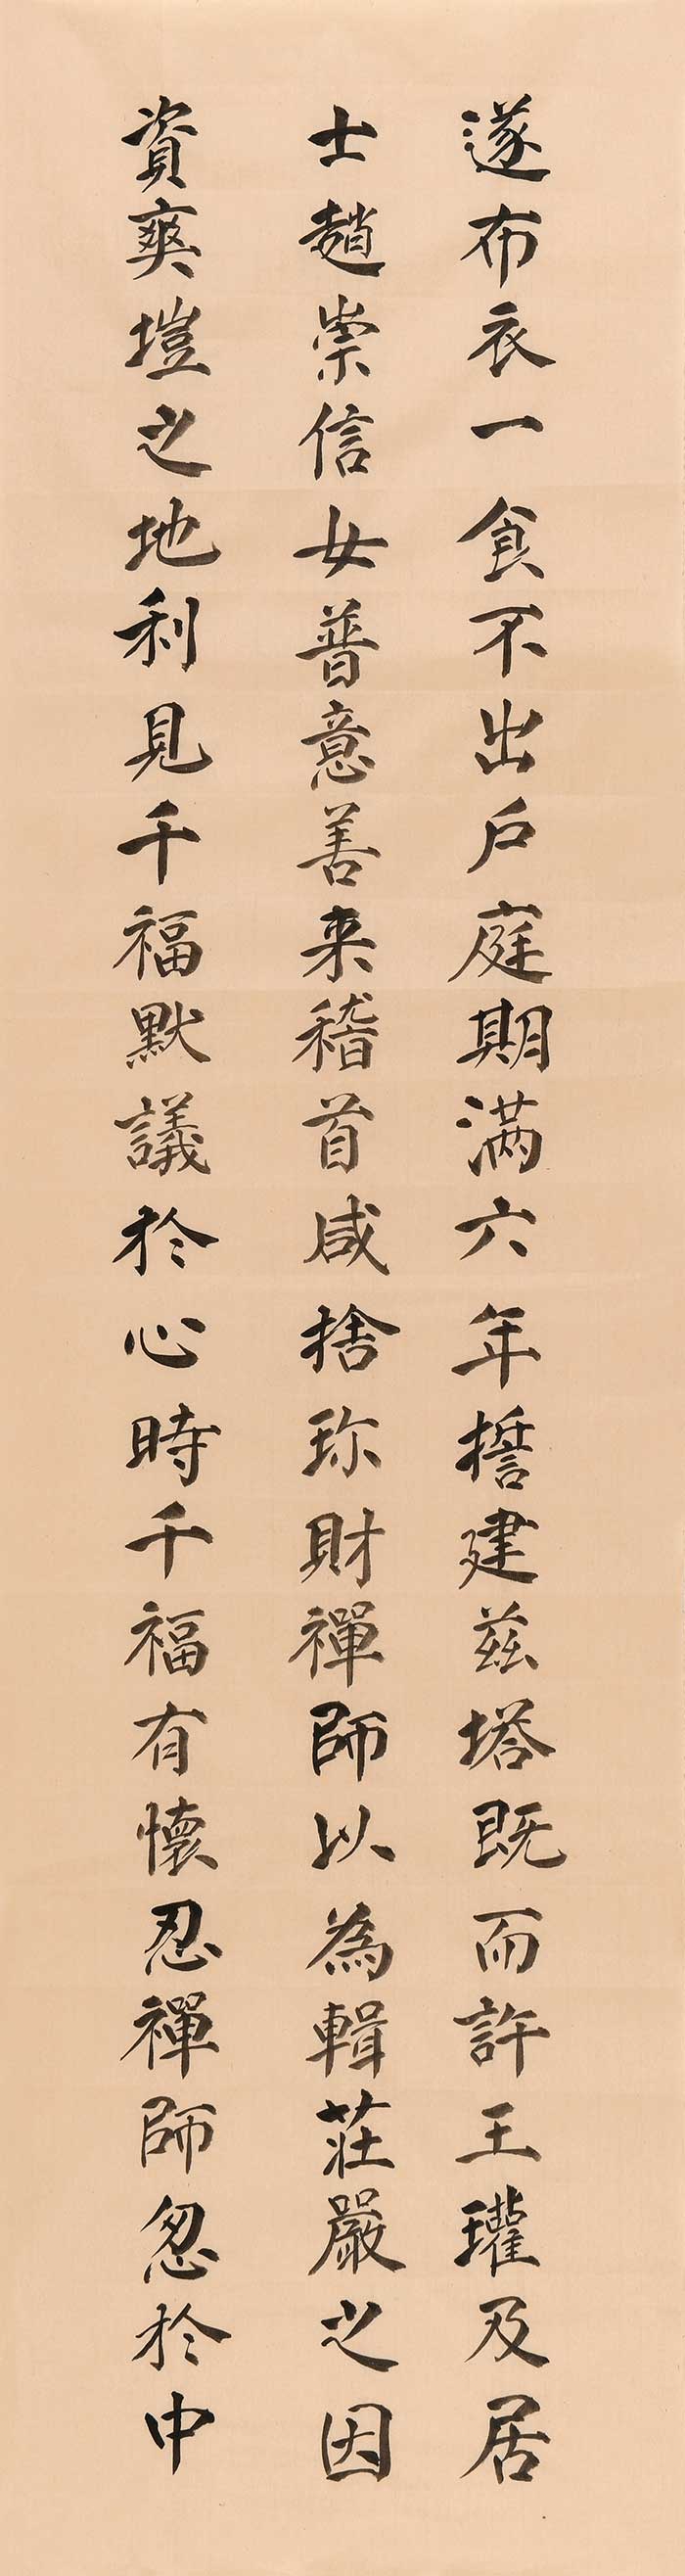 遂布衣一食不出户庭期滿六年誓建兹塔既而許王瓘及居
士趙崇信女普意善来稽首咸捨珍財禪師以為輯莊嚴之因
資爽塏之地利見千福默議於心時千福有懷忍禪師忽於中